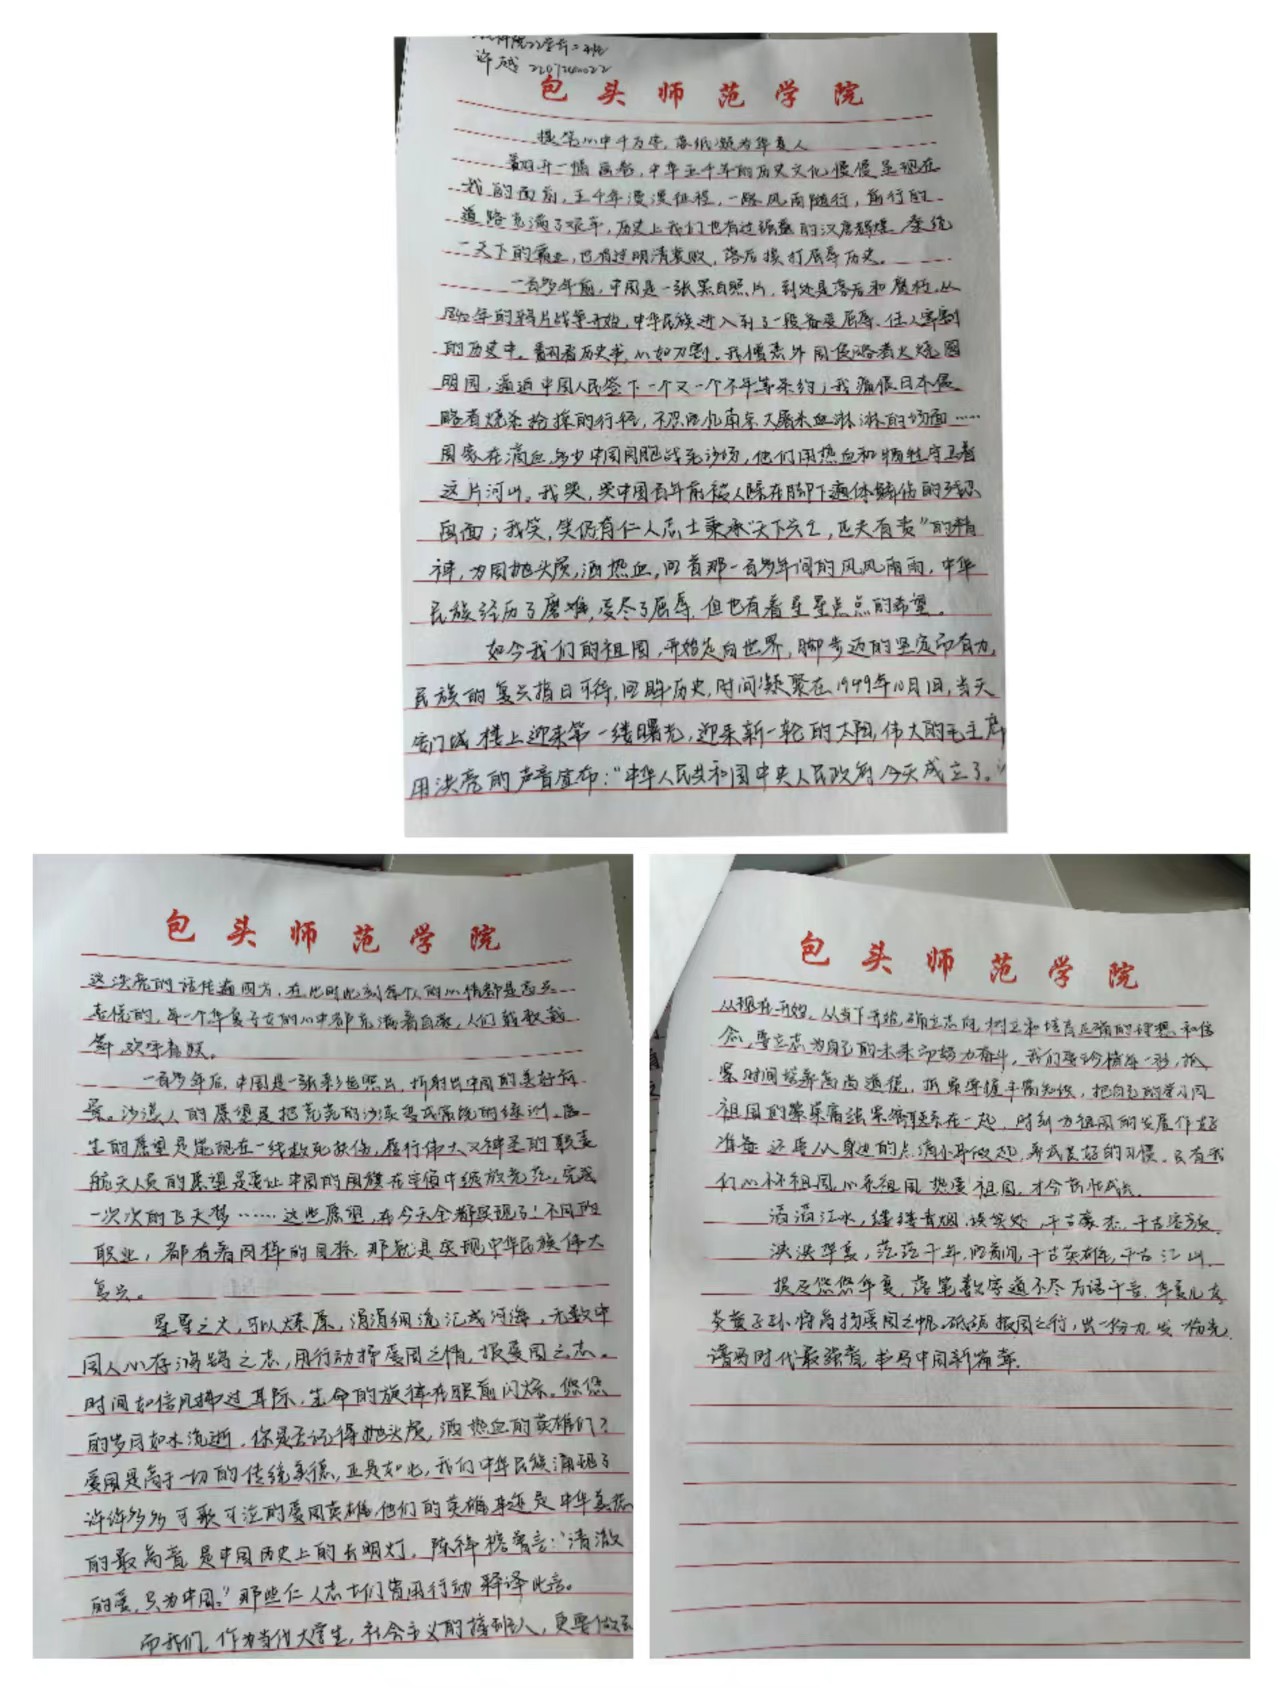 许越 2207240022
包头师范学院
提笔心中千万字，落纸凝为华夏人
翻开一幅画卷，中华五千年的历史文化慢慢呈现在
我的面前，五千年漫漫征程，一路风雨随行，前行的
道路充满了艰辛，历史上我们也有过强盛的汉唐辉煌、秦统
一天下的霸业，也有过明清衰败，落后挨打屈辱历史。
一百多年前，中国是一张黑白照片，到处是落后和腐朽，从
年的鸦片战争开始，中华民族进入到了一段备受屈辱、任人宰割
的历史中。翻看历史书，心如刀割。我憎恶外国侵略者火烧圆
明园，逼迫中国人民签下一个又一个不平等条约；我痛恨日本侵
略者烧杀抢掠的行径，不忍回北南京大屠杀血淋淋的场面……
国家在滴血，多少中国同胞战死沙场，他们用热血和牺牲守卫着
这片河山。我哭，哭中国百年前被人踩在脚下遍体鳞伤的残忍
画面；我笑，笑仍有仁人志士秉承“天下兴亡，匹夫有责”的精
神，为国抛头颅，洒热血，回首那一百多年间的风风雨雨，中华
民族经历了磨难，受尽了屈辱，但也有着星星点点的希望。
如今我们的祖国，开始走向世界，脚步迈的坚定而有力，
民族的复兴指日可待，回眸历史，时间凝聚在1949年10月1日，当天
安门城楼上迎来第一缕曙光，迎来新一轮的太阳，伟大的毛主席
用洪亮的声音宣布：“中华人民共和国中央人民政府今天成立了。”
包头师范学院
这洪亮的话传遍四方，在此时此刻每个人的心情都是
的，每一个华夏子女的心中都充满着自豪，人们载歌载
舞，欢呼
一百多年后，中国是一张彩色照片，折射出中国的美好前
景。沙漠人的愿望是把荒芜的沙漠变成富饶的绿洲，医
生的愿望是能现在一线救死扶伤，履行伟大又神圣的职责
航天人员的愿望是要让中国的国旗在宇宙中绽放光芒，完成
一次次的飞天梦……这些愿望，在今天全都实现了！不同的
职业，都有着同样的目标，那就是实现中华民族伟大
复兴。
星星之火，可以燎原，涓涓细流汇成河海，无数中
国人心存鸿鹄之志，用行动抒爱国之情，报爱国之志。
时间如信风拂过耳际，生命的旋律在眼前闪烁。悠悠
的岁月如水流逝，你是否记得抛头颅，洒热血的英雄们？
爱国是高于一切的传统美德，正是如此，我们中华民族涌现了
许许多多可歌可泣的爱国英雄，他们的英雄事迹是中华
的最高音，是中国历史上的长明灯，陈祥榕曾言：“清澈
的爱，只为中国。”那些仁人志士们皆用行动释译此言。
而我们，作为当代大学生，社会主义的接班人，更要做到
包头师范学院
从现在开始，从当下开始，确立志向，树立和培育正确的理想和信
念，要立志为自己的未来而努力奋斗，我们要珍惜每一秒，抓
紧时间培养高尚道德，抓紧掌握丰富知识，把自己的学习同
祖国的繁荣富强紧密联系在一起，时刻为祖国的发展作好
准备，还要从身边的点滴小事做起，养成良好的习惯。只有我
们心怀祖国，心系祖国，热爱祖国，才会茁壮成长。
滔滔江水，缕缕青烟，谈笑处，千古豪杰，千古
泱泱华夏，茫茫千年，回首间，千古英雄，千古江山。
提及悠悠华夏，落笔数字道不尽万语千言，华夏儿女
炎黄子孙，将高扬爱国之帆，砥砺报国之行，出一份力，发一份光，
谱写时代最强音，书写中国新篇章。